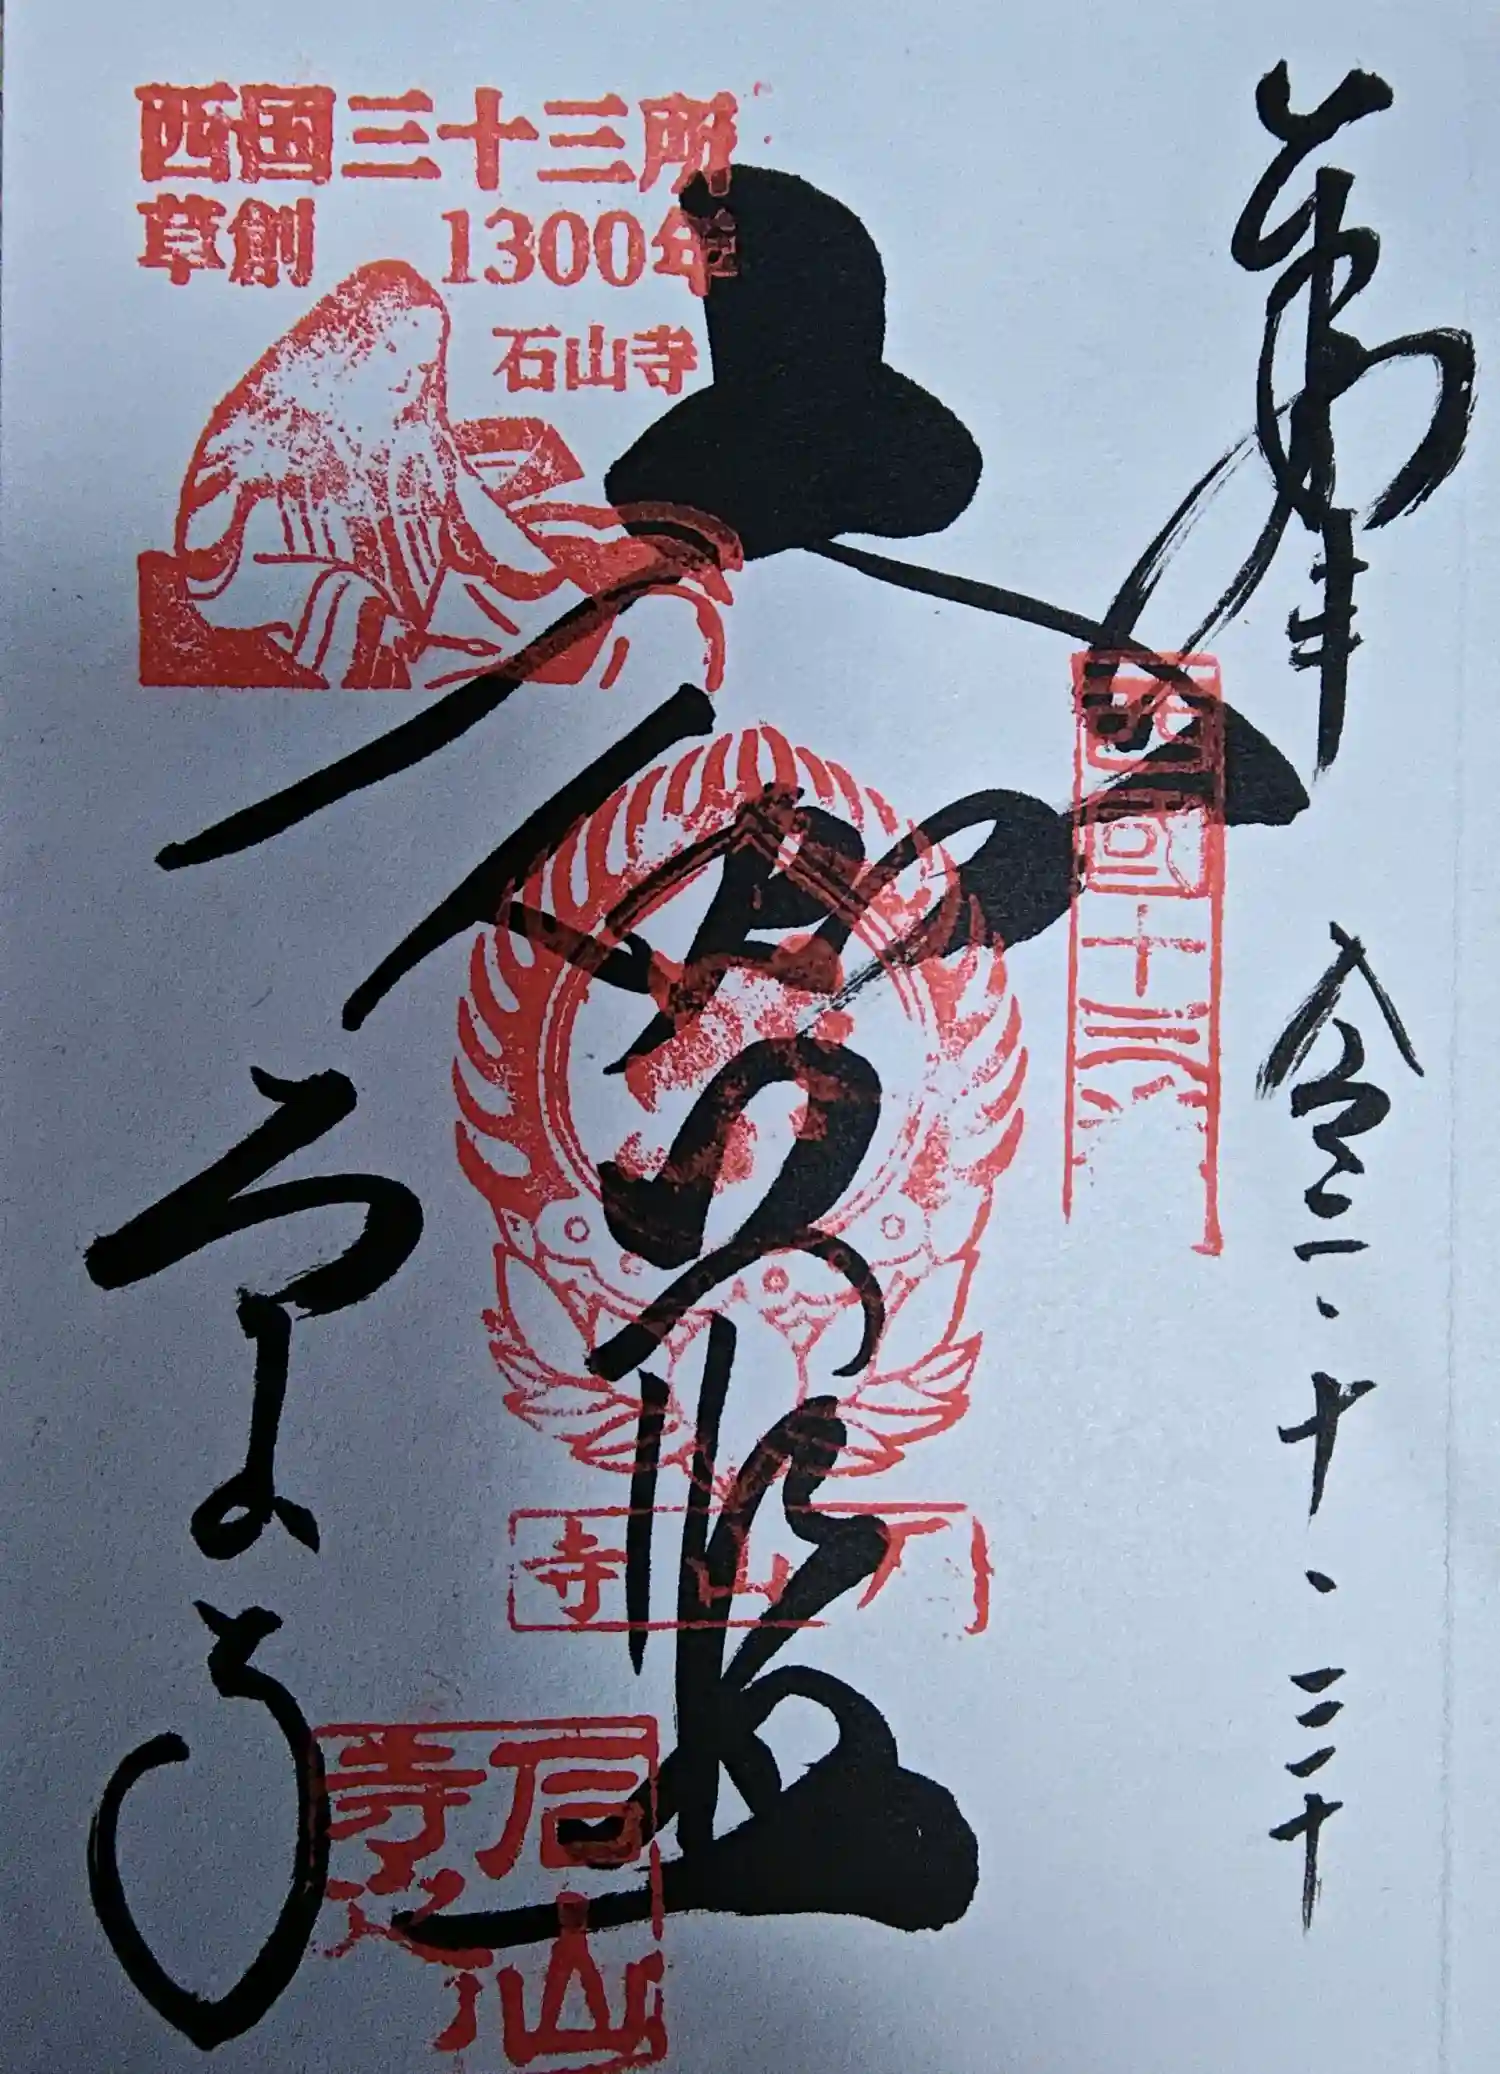 奉拝
令二・十・三十
西国十三
大伽藍
西国三十三所
草創 1300年
石山寺
石山寺
石山寺
石山寺